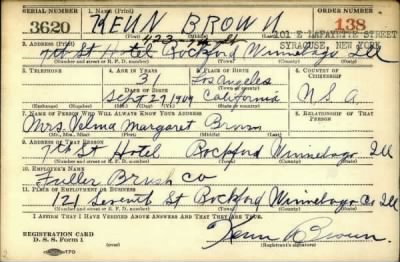 SERIAL NUMBER 1. NAME (Print) ORDER NUMBER
3620 KENN BROWN 138
(First) (Middle) (Last)
423-7th St 101 E LAFAYETTE STREET
2. ADDRESS (Print) SYRACUSE, NEW YORK
7th St Hotel Rockford Winnebago Ill
(Number and street or R. F. D. number) (Town) (County) (State)
3. TELEPHONE 4. AGE IN YEARS 5. PLACE OF BIRTH 6. COUNTRY OF CITIZENSHIP
31 Los Angeles
DATE OF BIRTH (Town or county)
Sept 27 1909 California U.S.A.
(Exchange) (Number) (Mo.) (Day) (Yr.) (State or country)
7. NAME OF PERSON WHO WILL ALWAYS KNOW YOUR ADDRESS 8. RELATIONSHIP OF THAT PERSON
Mrs Velma Margaret Brown
(Mr., Mrs., Miss) (First) (Middle) (Last)
9. ADDRESS OF THAT PERSON
7th St Hotel Rockford Winnebago Ill
(Number and street or R. F. D. number) (Town) (County) (State)
10. EMPLOYER'S NAME
Fuller Brush Co
11. PLACE OF EMPLOYMENT OR BUSINESS
121 Seventh St Rockford Winnebago Co Ill
(Number and street or R. F. D. number) (Town) (County) (State)
I AFFIRM THAT I HAVE VERIFIED ABOVE ANSWERS AND THAT THEY ARE TRUE.
REGISTRATION CARD
D. S. S. Form 1 Kenn Brown
(Registrant's signature)